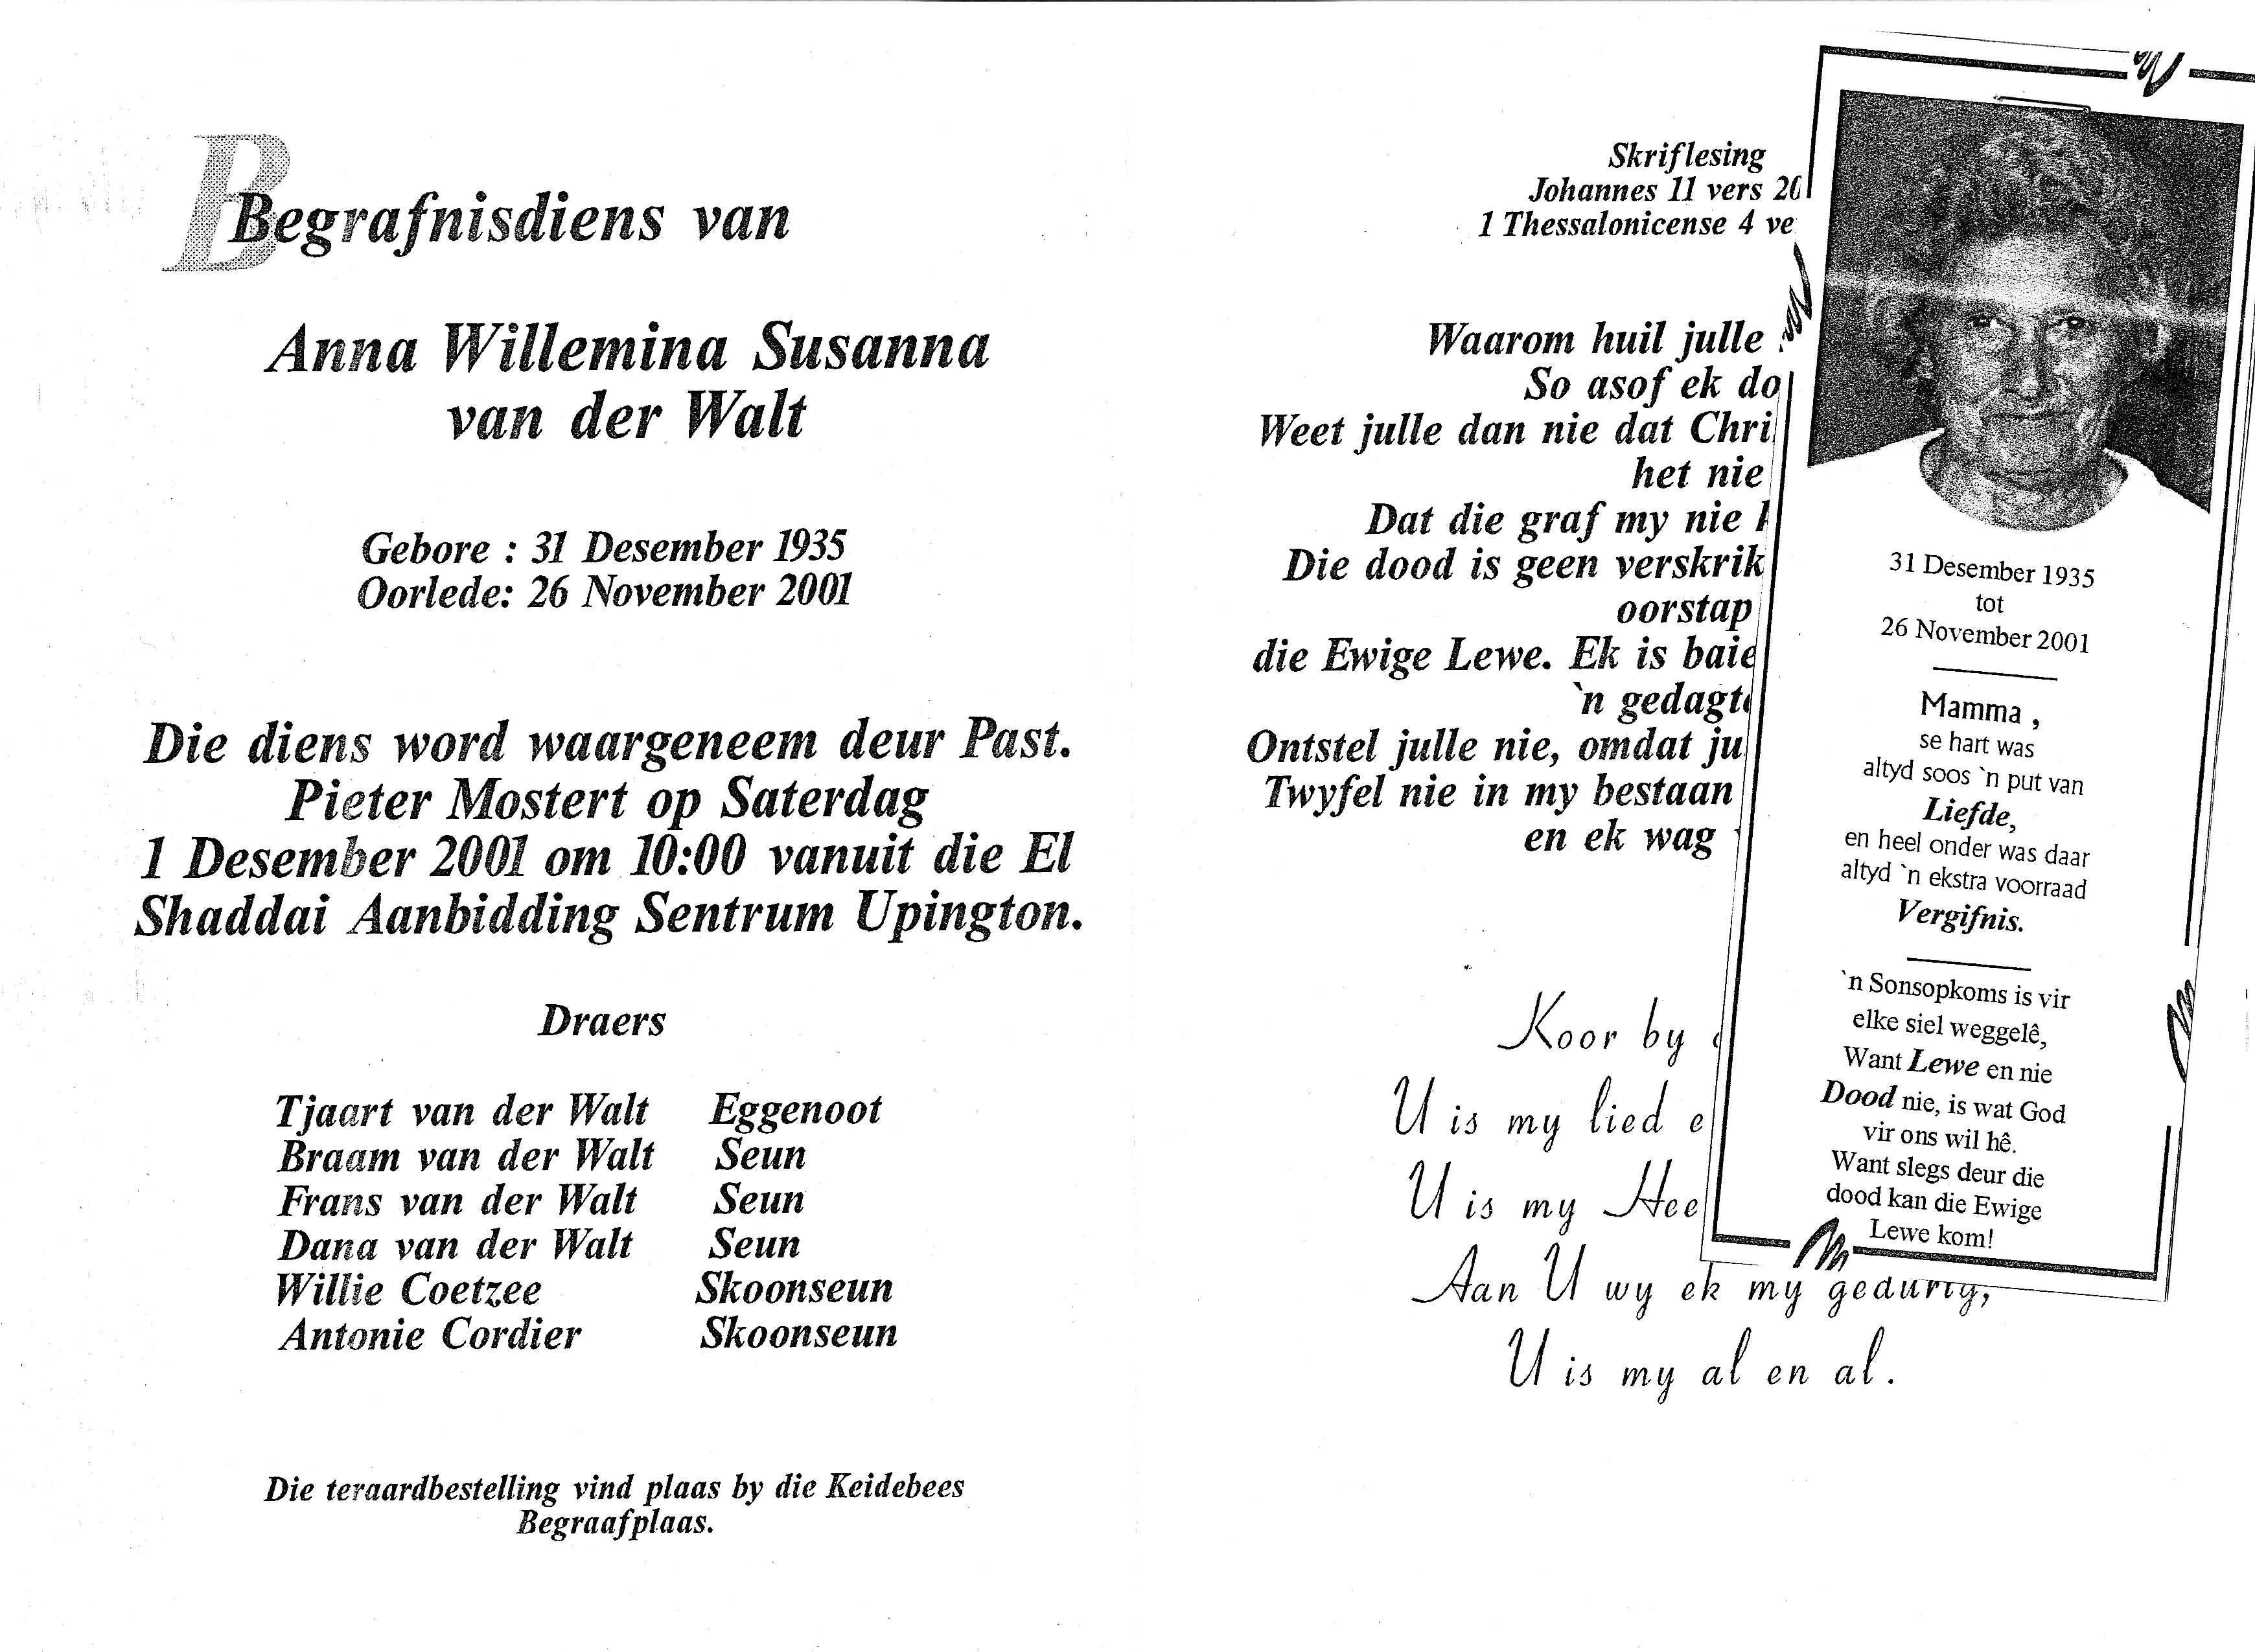 Begrafnisdiens van
Anna Willemina Susanna
van der Walt
Gebore : 31 Desember 1935
Oorlede: 26 November 2001
Die diens word waargeneem deur Past.
Pieter Mostert op Saterdag
1 Desember 2001 om 10:00 vanuit die El
Shaddai Aanbidding Sentrum Upington.
Draers
Tjaart van der Walt Eggenoot
Braam van der Walt Seun
Frans van der Walt Seun
Dana van der Walt Seun
Willie Coetzee Skoonseun
Antonie Cordier Skoonseun
Die teraardbestelling vind plaas by die Keidebees
Begraafplaas.
Skriflesing
Johannes 11 vers 20
1 Thessalonicense 4
Waarom huil julle
So asof ek
Weet julle dan nie dat
het nie
Dat die graf my nie
Die dood is geen
oorstap
die Ewige Lewe. Ek is baie
`n
Ontstel julle nie, omdat
Twyfel nie in my bestaan
en ek wag
Koor by
U is my lied
U is my
Aan U wy ek my gedurig,
U is my al en al.
31 Desember 1935
tot
26 November 2001
Mamma ,
se hart was
altyd soos `n put van
Liefde,
en heel onder was daar
altyd `n ekstra voorraad
Vergifnis.
`n Sonsopkoms is vir
elke siel weggelê,
Want Lewe en nie
Dood nie, is wat God
vir ons wil hê.
Want slegs deur die
dood kan die Ewige
Lewe kom!